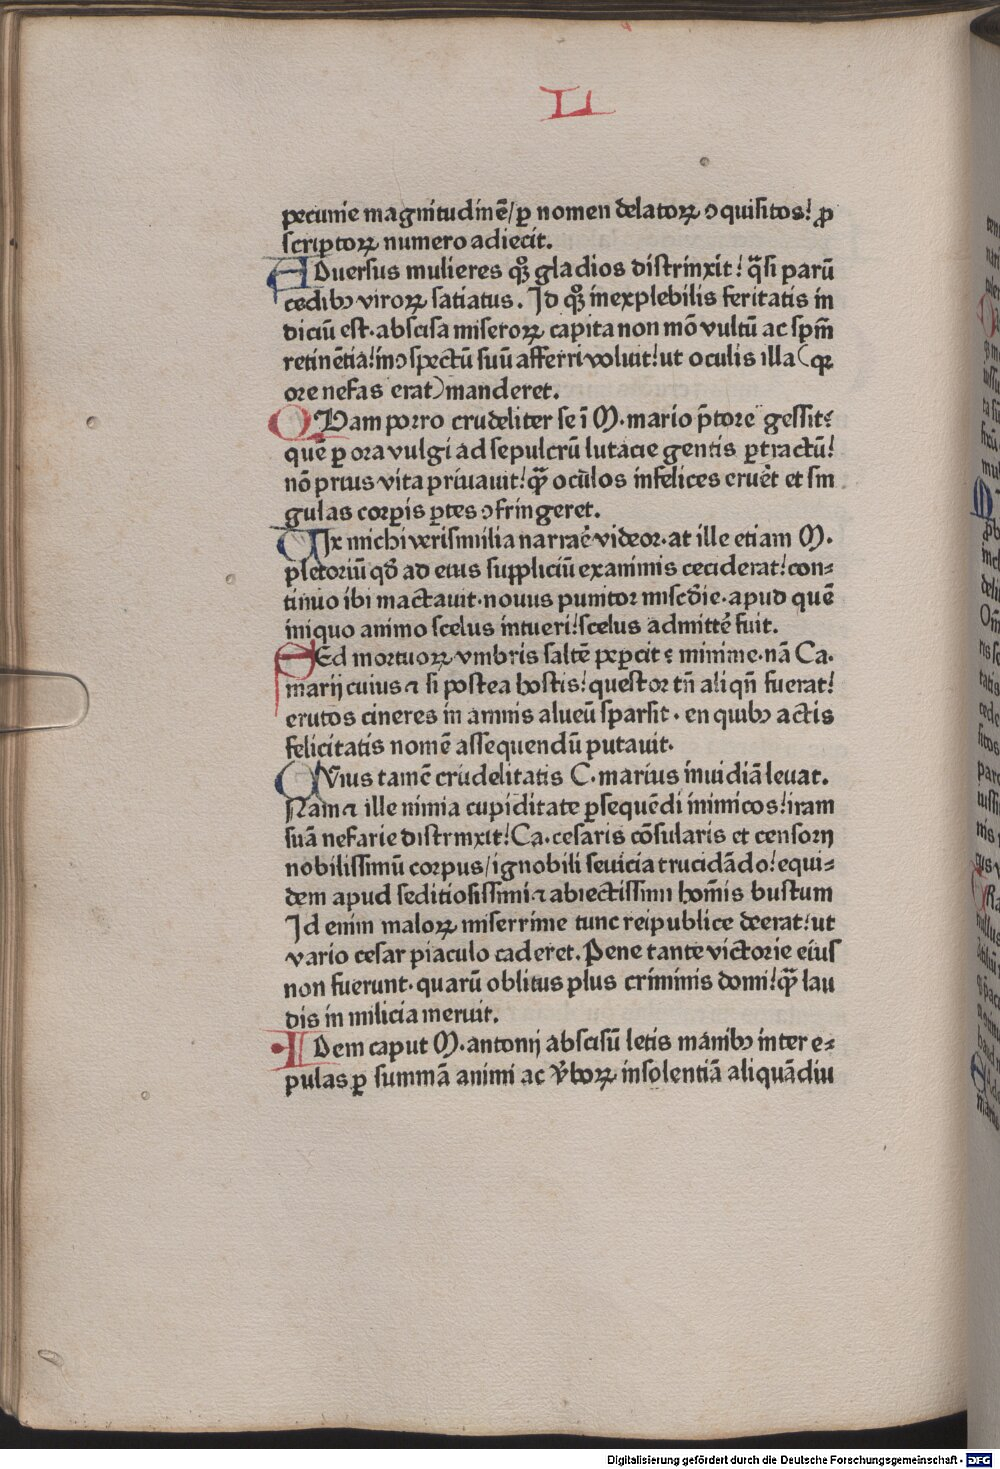 LI
pecunie magnitudinē/ꝑ nomen delatoꝝ ↄquisitos! ꝓ
scriptoꝝ numero adiecit.
ADuersus mulieres qꝫ gladios distrinxit! q̄si parū
cedibꝯ viroꝝ satiatus. Id qꝫ inexplebilis feritatis in
diciū est·abscisa miseroꝝ capita non mō vultū ac spm̄
retinētia!in ↄspectū suū afferri voluit!ut oculis illa(qꝛ
ore nefas erat)manderet.
QVam porro crudeliter se ī M·mario p̄tore gessit:
quē ꝑ ora vulgi ad sepulcrū lutacie gentis ꝑtractū!
nō prius vita priuauit!qꝫ̄ oculos infelices eruēt et sin
gulas corꝑis ꝑtes ↄfringeret.
VIx michi verisimilia narrare videor·at ille etiam M.
pletoriū qđ ad eius suppliciū exanimis ceciderat!con⸗
tinuo ibi mactauit·nouus punitor misc̄die·apud quē
iniquo animo scelus intueri!scelus admittē fuit.
SEd mortuoꝝ vmbris saltē peꝑcit: minime·nā Ca.
marij cuius ⁊ si postea hostis! questor tn̄ aliqn̄ fuerat!
erutos cineres in amnis alueū sparsit·en quibꝯ actis
felicitatis nomē assequendū putauit.
CVius tamē crudelitatis C·marius inuidiā leuat.
Nam ⁊ ille nimia cupiditate ꝑsequēdi inimicos!iram
suā nefarie distrinxit!Ca·cesaris cōsularis et censorij
nobilissimū corpus/ignobili seuicia trucidādo!equi⸗
dem apud seditiosissimi ⁊ abiectissimi hoīs bustum
Id enim maloꝝ miserrime tunc reipublice deerat!ut
vario cesar piaculo caderet. Pene tante victorie eius
non fuerunt·quarū oblitus plus criminis domi!qꝫ̄ lau
dis in milicia meruit.
IDem caput M·antonij abscisū letis manibꝯ inter e⸗
pulas ꝑ summā animi ac v̄boꝝ insolentiā aliquādiu
Digitalisierung gefördert durch die Deutsche Forschungsgemeinschaft - DFG